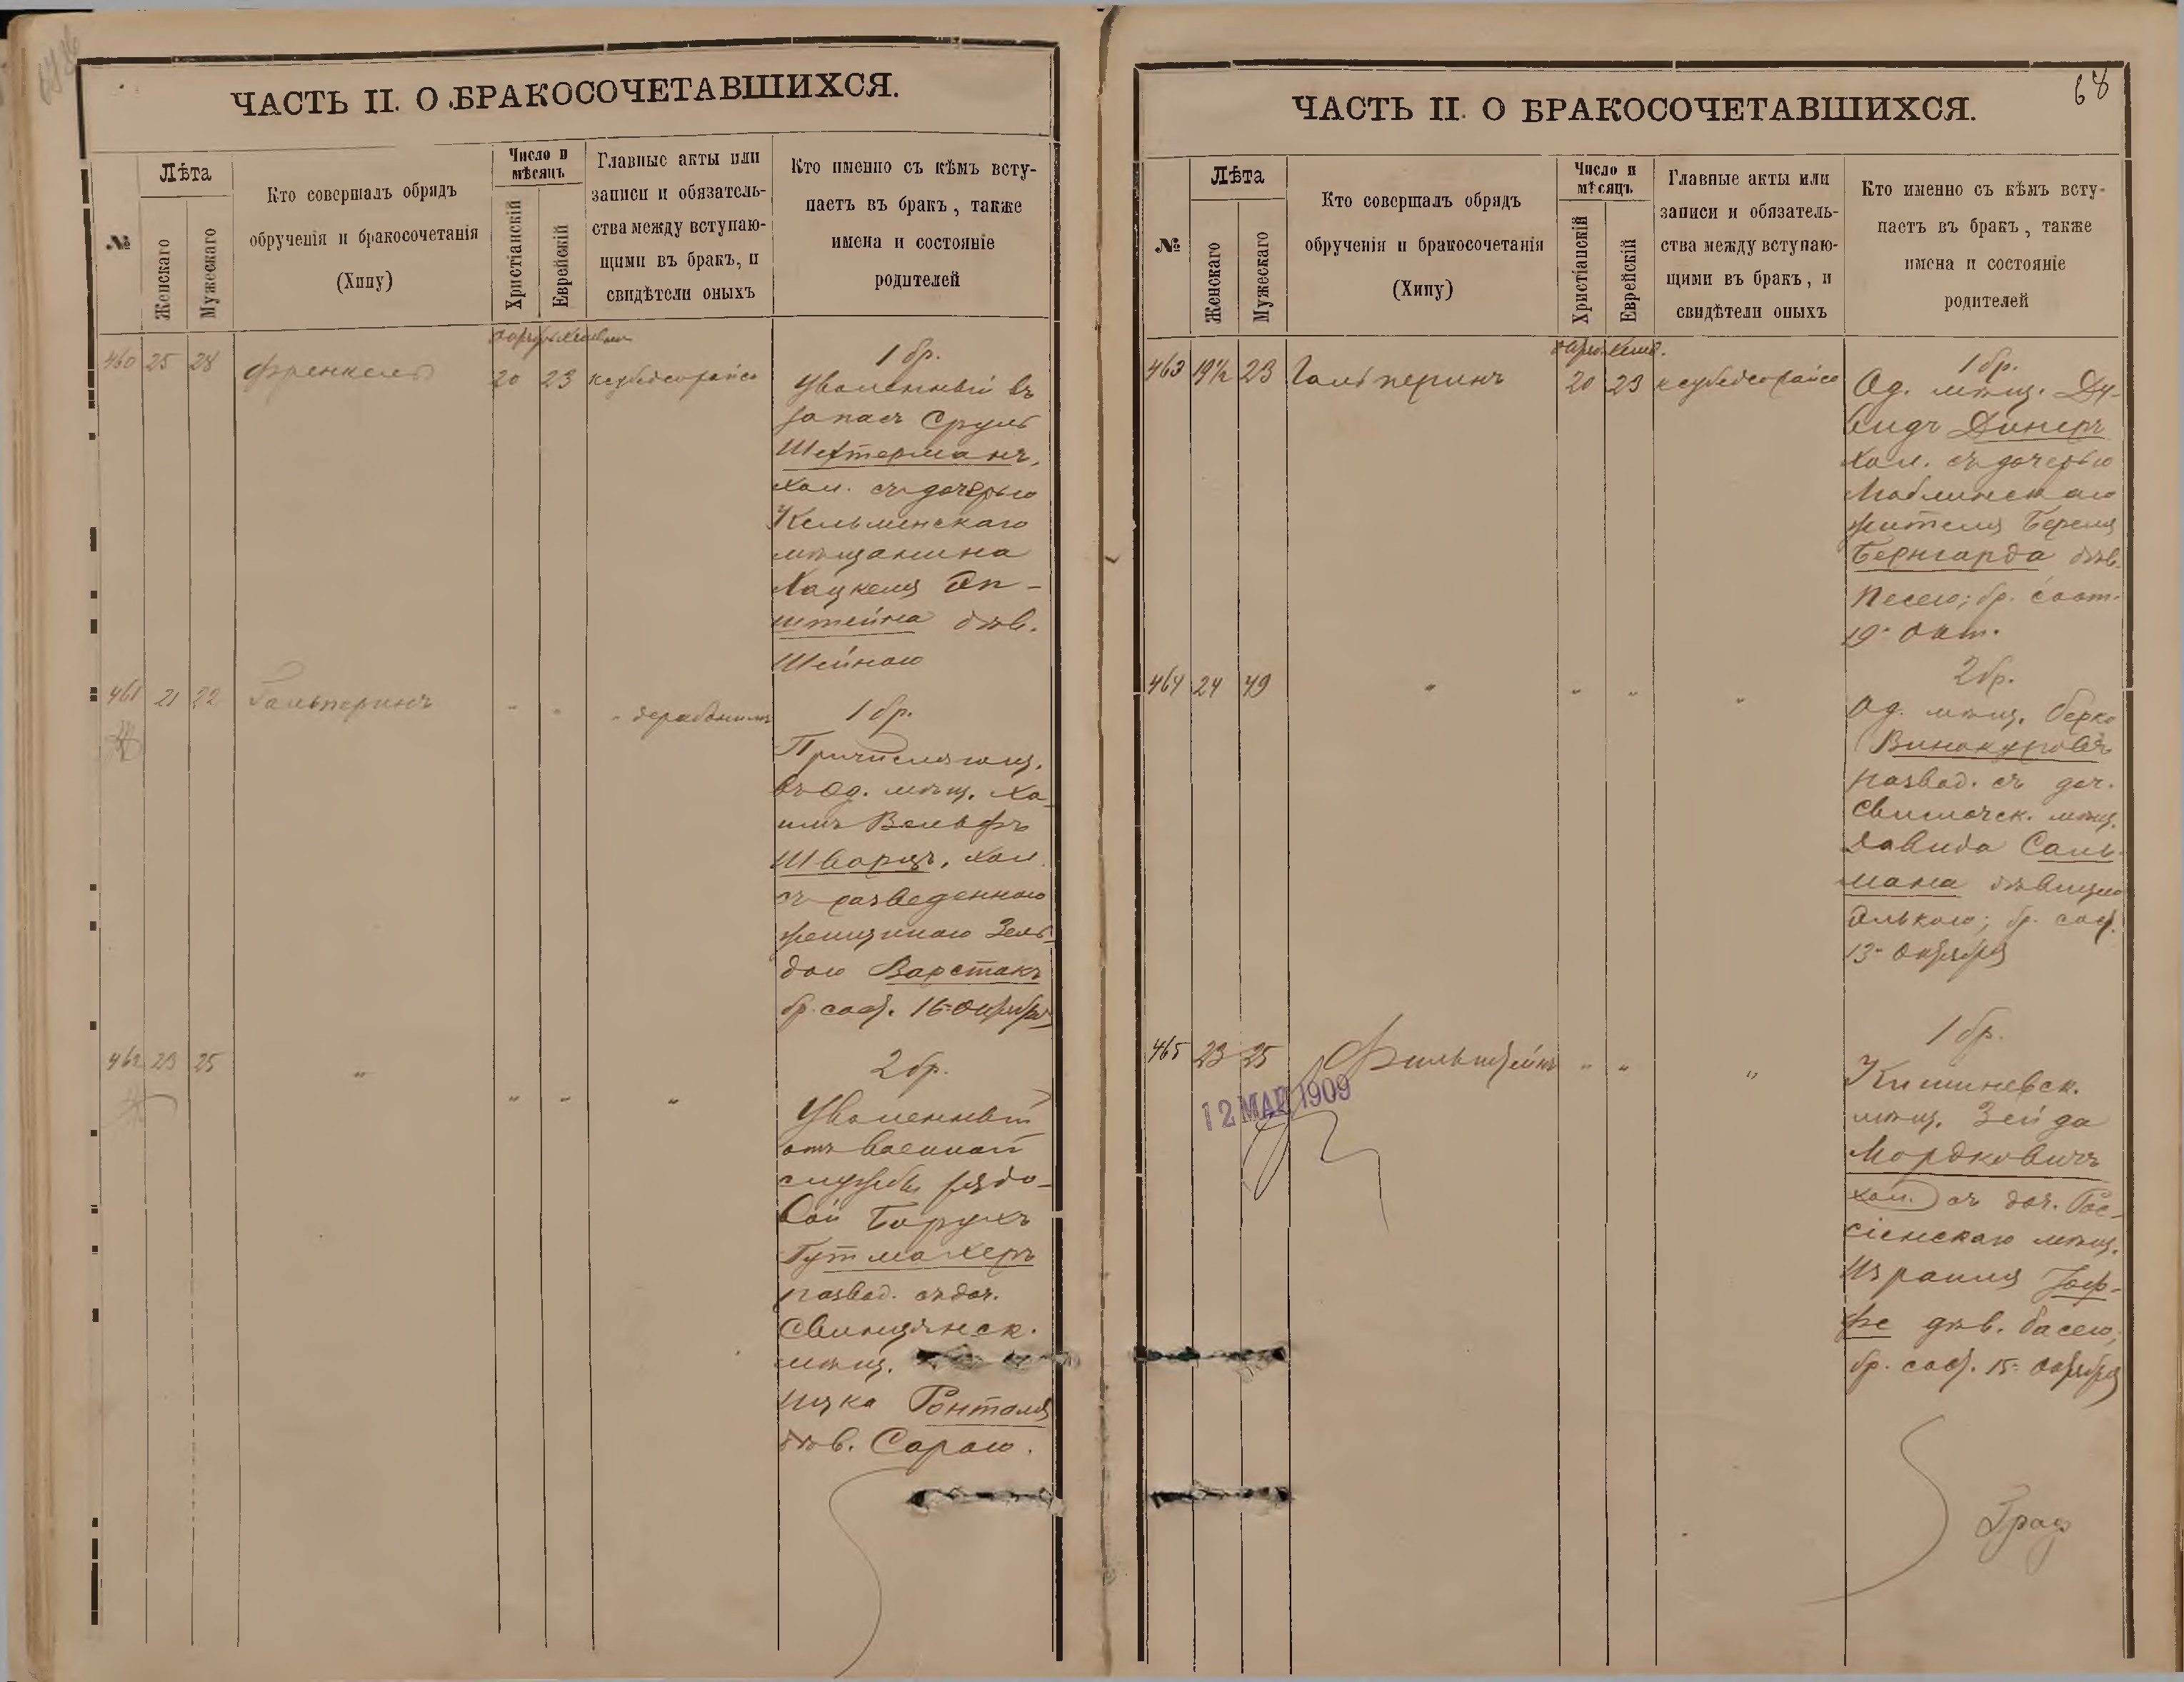 ЧАСТЬ II. О БРАКОСОЧЕТАВШИХСЯ.
№
Лѣта
Женскаго
Мужескаго
Кто совершалъ обрядъ
обрученія и бракосочетанія
(Хипу)
Число и
мѣсяцъ
Христіанскій
Еврейскій
Главные акты или
записи и обязатель-
ства между вступаю-
щими въ бракъ, и
свидѣтели оныхъ
Кто именно съ кѣмъ всту-
паетъ въ бракъ, также
имена и состояніе
родителей
460 25 28 Френкель 20 23
1 бр.
Уволенный въ
запасъ Сруль
Шехтерманъ,
хол. съ дочерью
Кельменскаго
мѣщанина
Хацкеля Эп-
штейна дѣв.
Шейною
461 21 22 Гальперинъ " " "
1 бр.
Причисляющ.
въ Од. мѣщ. Ха-
имъ Вельфъ
Шварцъ, хол.
съ разведенною
женщиною Зель-
дою Варстакъ
бр. сост. 16 Октября
462 23 25 " " " "
2 бр.
Уволенный
отъ военной
службы рядо-
вой Борухъ
Гутмахеръ
развод. съ доч.
Свинцянск.
мѣщ.
Ицка Ронталя
дѣв. Сарою.
ЧАСТЬ II. О БРАКОСОЧЕТАВШИХСЯ.
68
№
Лѣта
Женскаго
Мужескаго
Кто совершалъ обрядъ
обрученія и бракосочетанія
(Хипу)
Число и
мѣсяцъ
Христіанскій
Еврейскій
Главные акты или
записи и обязатель-
ства между вступаю-
щими въ бракъ, и
свидѣтели оныхъ
Кто именно съ кѣмъ всту-
паетъ въ бракъ, также
имена и состояніе
родителей
463 19½ 23 Гальперинъ 20 23
1 бр.
Од. мѣщ. Ду-
видъ Динеръ
хол. съ дочерью
Люблинскаго
жителя Береля
Бернгарда дѣв.
Песею; бр. сост.
19 Окт.
464 24 49 " " " "
2 бр.
Од. мѣщ. Берко
Винокуровъ
развод. съ доч.
Свислочск. мѣщ.
Давида Саль-
мана дѣвицею
Элькою; бр. сост.
13 Октября
465 23 25 Фильштейнъ " " "
12 МАР 1909
1 бр.
Кишиневск.
мѣщ. Зейда
Мордковичъ
хол. съ доч. Рос-
сіенскаго мѣщ.
Израиля Іоф-
фе дѣв. Басею,
бр. сост. 15 Октября